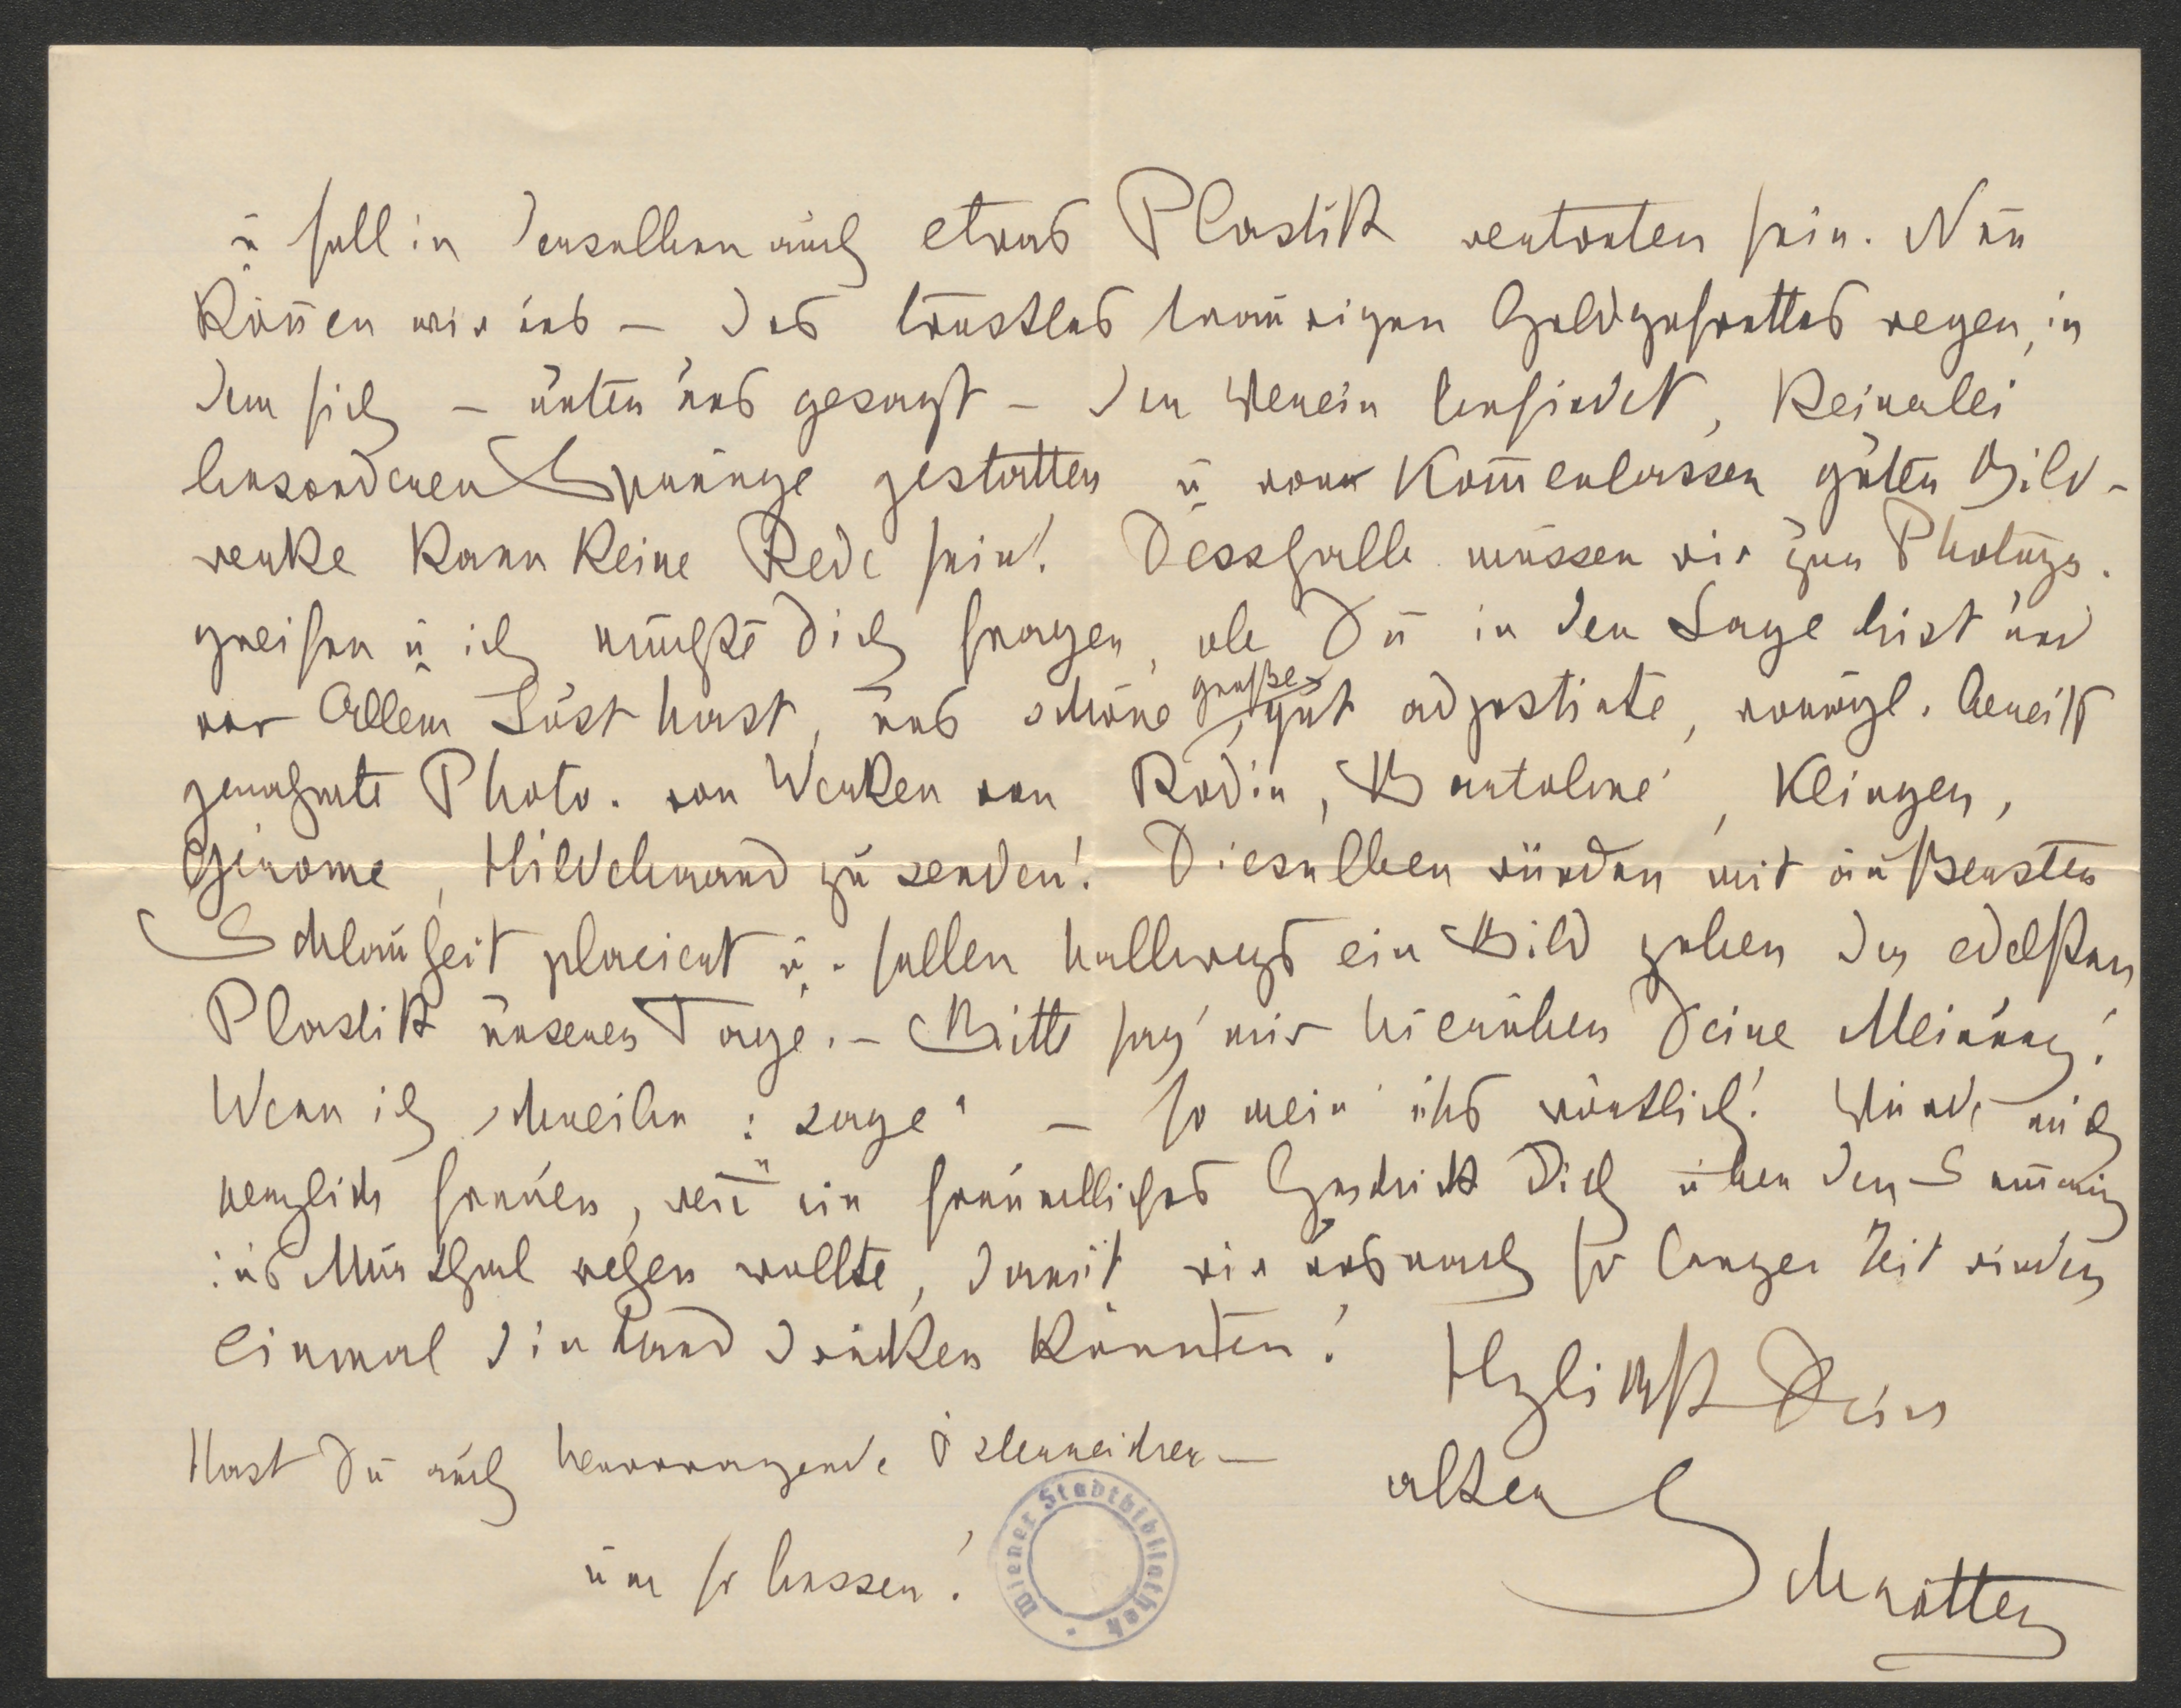 u soll in derselben auch etwas Plastik vertreten sein. Nun
können wir uns – des trostlos traurigen Geldgefrettes wegen, in
dem sich – unter uns gesagt – der Verein befindet, keinerlei
besonderen Sprünge gestatten u vom Kom̅enlassen guter Bild-
werke kann keine Rede sein! Desshalb müssen wir zur Photogr.
greifen u ich möchte Dich fragen, ob Du in der Lage bist und
vor Allem Lust hast, uns schöne große, gut adjustirte, womögl. bereits
gerahmte Photo. von Werken von Rodin, Bartolomé, Klinger,
Gérome, Hildebrand zu senden! Dieselben würden mit äußerster
Schlauheit placiert u. sollen halbwegs ein Bild geben der edelsten
Plastik unserer Tage. – Bitte sag' mir hierüber Deine Meinung!
Wenn ich schreibe: „sage" – so mein' ichs wörtlich! Würde mich
herzlich freuen, wen̅ ein freundliches Geschick Dich über den Sem̅ering
ins Mürzthal wehen wollte, damit wir uns nach so langer Zeit wieder
einmal die Hand drücken könnten!
Hzlichst Dein
alter
Schrötter
Hast Du auch hervorragende Österreicher –
um so besser!
Wiener Stadtbibliothek